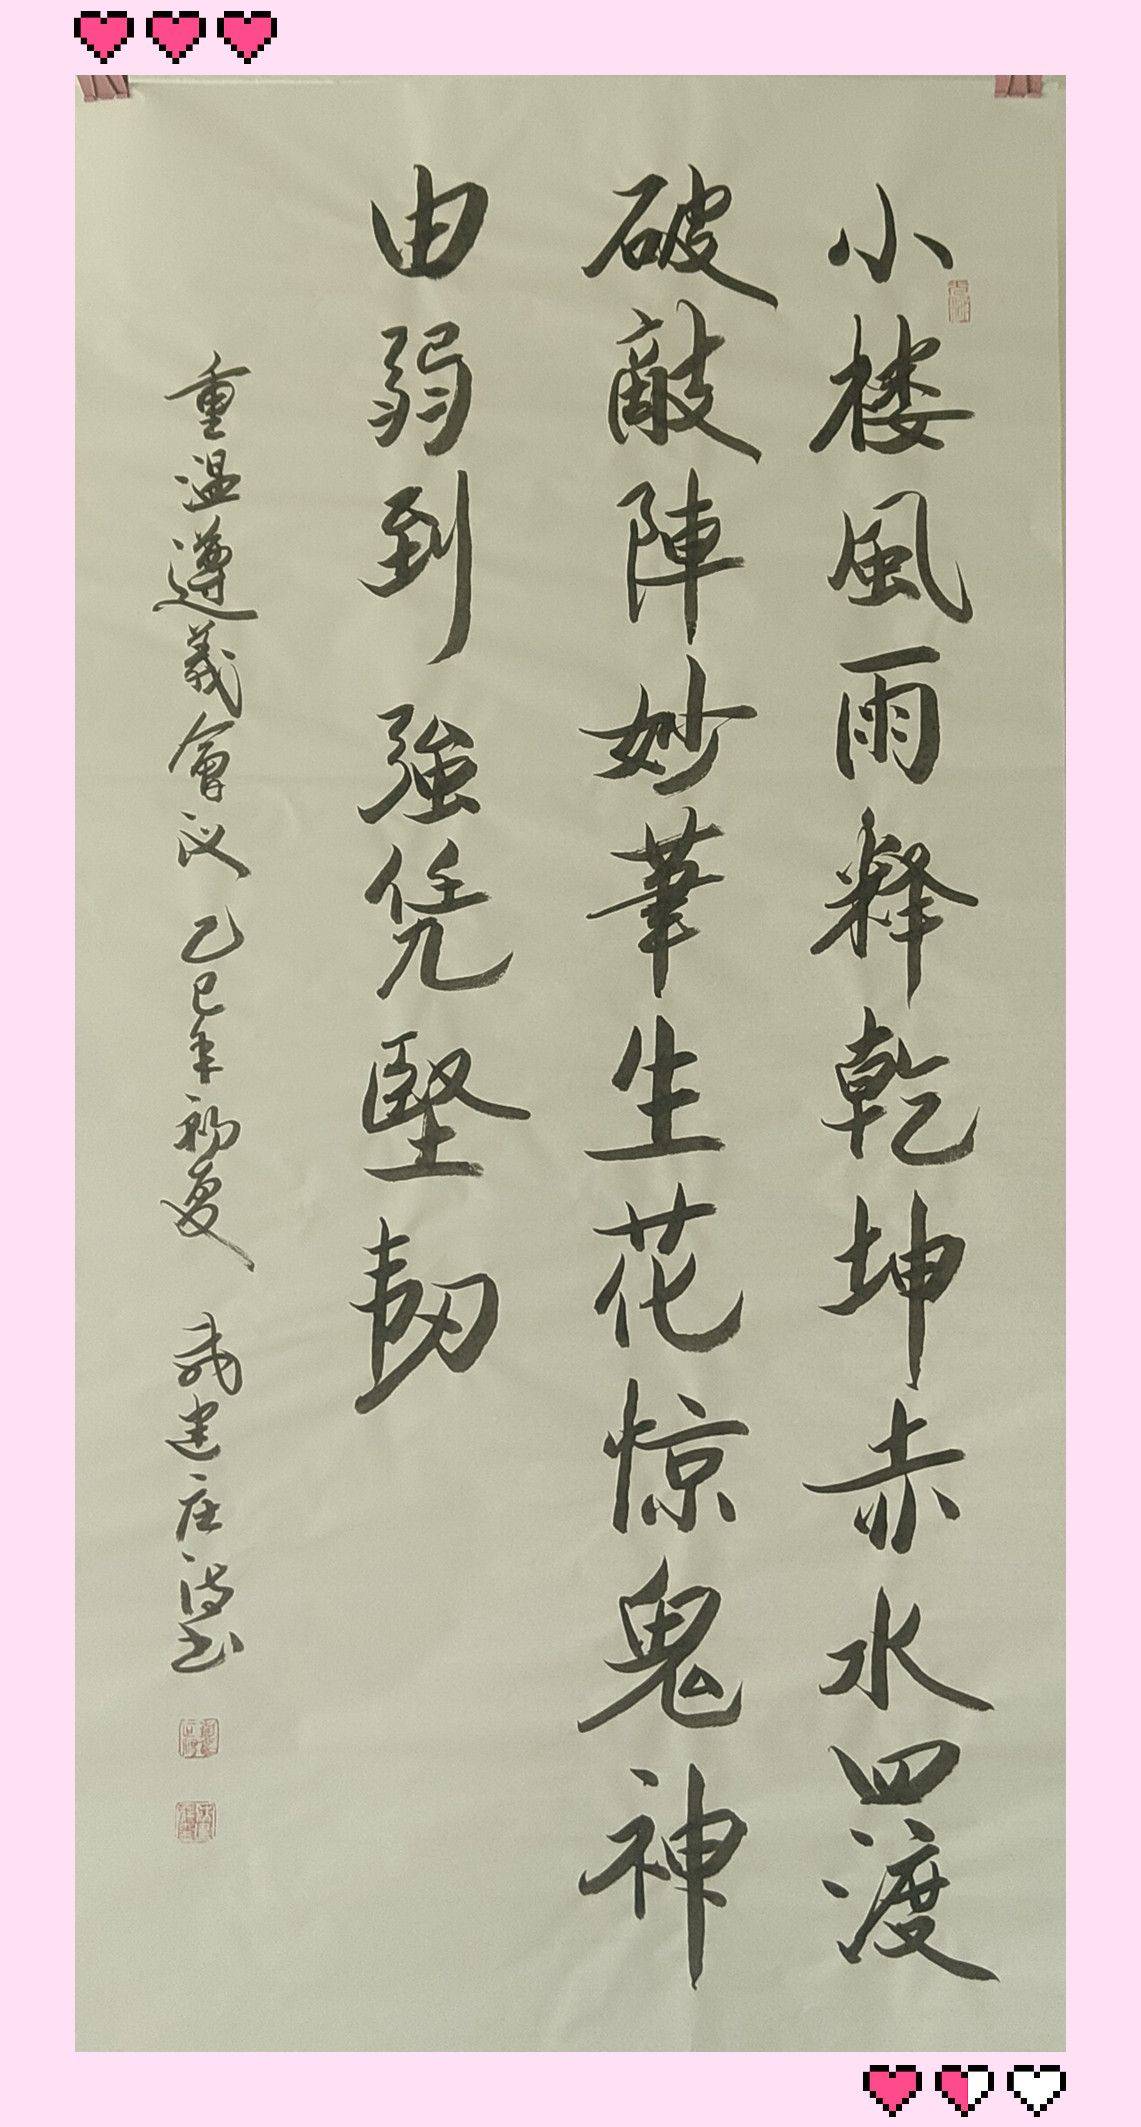 小楼風雨释乾坤赤水四渡
破敵陣妙筆生花惊鬼神
由弱到強凭堅韧
重温遵義會议 乙巳年初夏 武建庄诗书